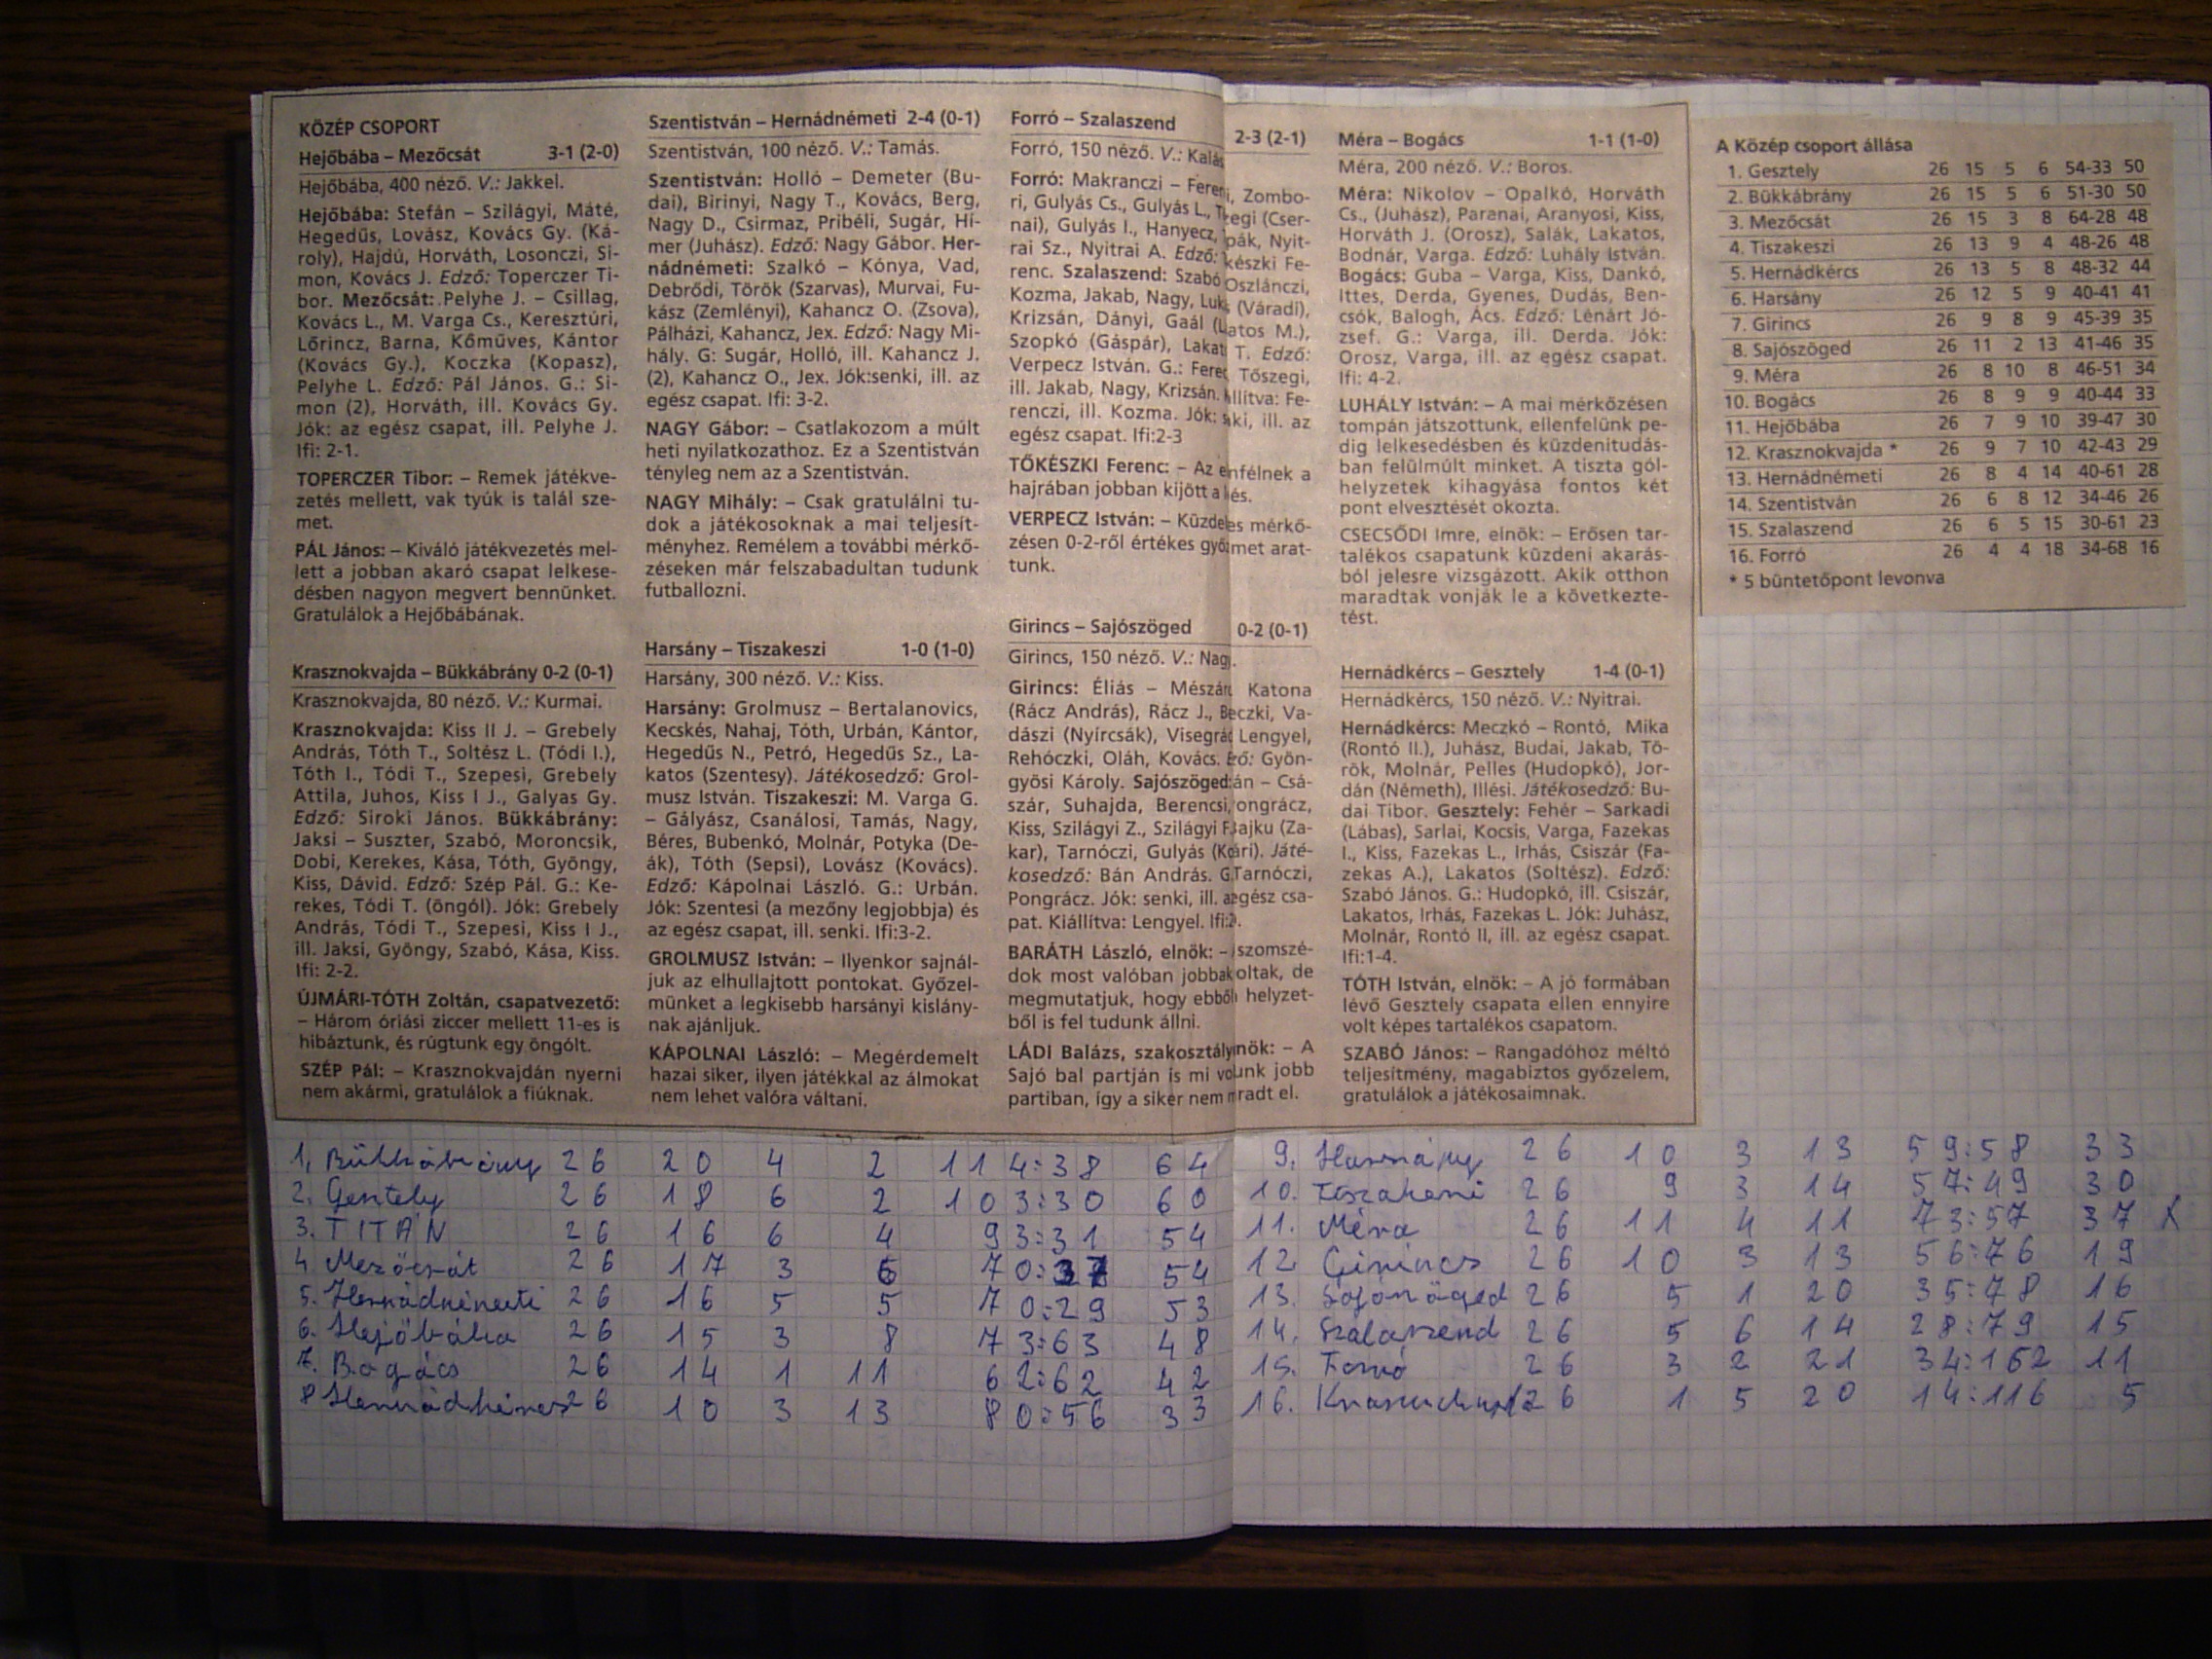 KÖZÉP CSOPORT
Hejőbába – Mezőcsát 3-1 (2-0)
Hejőbába, 400 néző. V.: Jakkel.
Hejőbába: Stefán – Szilágyi, Máté,
Hegedűs, Lovász, Kovács Gy. (Ká-
roly), Hajdú, Horváth, Losonczi, Si-
mon, Kovács J. Edző: Toperczer Ti-
bor. Mezőcsát: Pelyhe J. – Csillag,
Kovács L., M. Varga Cs., Keresztúri,
Lőrincz, Barna, Kőműves, Kántor
(Kovács Gy.), Koczka (Kopasz),
Pelyhe L. Edző: Pál János. G.: Si-
mon (2), Horváth, ill. Kovács Gy.
Jók: az egész csapat, ill. Pelyhe J.
Ifi: 2-1.
TOPERCZER Tibor: – Remek játékve-
zetés mellett, vak tyúk is talál sze-
met.
PÁL János: – Kiváló játékvezetés mel-
lett a jobban akaró csapat lelkese-
désben nagyon megvert bennünket.
Gratulálok a Hejőbábának.
Krasznokvajda – Bükkábrány 0-2 (0-1)
Krasznokvajda, 80 néző. V.: Kurmai.
Krasznokvajda: Kiss II J. – Grebely
András, Tóth T., Soltész L. (Tódi I.),
Tóth I., Tódi T., Szepesi, Grebely
Attila, Juhos, Kiss I J., Galyas Gy.
Edző: Siroki János. Bükkábrány:
Jaksi – Suszter, Szabó, Moroncsik,
Dobi, Kerekes, Kása, Tóth, Gyöngy,
Kiss, Dávid. Edző: Szép Pál. G.: Ke-
rekes, Tódi T. (öngól). Jók: Grebely
András, Tódi T., Szepesi, Kiss I J.,
ill. Jaksi, Gyöngy, Szabó, Kása, Kiss.
Ifi: 2-2.
ÚJMÁRI-TÓTH Zoltán, csapatvezető:
– Három óriási ziccer mellett 11-es is
hibáztunk, és rúgtunk egy öngólt.
SZÉP Pál: – Krasznokvajdán nyerni
nem akármi, gratulálok a fiúknak.
Szentistván – Hernádnémeti 2-4 (0-1)
Szentistván, 100 néző. V.: Tamás.
Szentistván: Holló – Demeter (Bu-
dai), Birinyi, Nagy T., Kovács, Berg,
Nagy D., Csirmaz, Pribéli, Sugár, Hi-
mer (Juhász). Edző: Nagy Gábor. Her-
nádnémeti: Szalkó – Kónya, Vad,
Debrődi, Török (Szarvas), Murvai, Fu-
kász (Zemlényi), Kahancz O. (Zsova),
Pálházi, Kahancz, Jex. Edző: Nagy Mi-
hály. G: Sugár, Holló, ill. Kahancz J.
(2), Kahancz O., Jex. Jók:senki, ill. az
egész csapat. Ifi: 3-2.
NAGY Gábor: – Csatlakozom a múlt
heti nyilatkozathoz. Ez a Szentistván
tényleg nem az a Szentistván.
NAGY Mihály: – Csak gratulálni tu-
dok a játékosoknak a mai teljesít-
ményhez. Remélem a további mérkő-
zéseken már felszabadultan tudunk
futballozni.
Harsány – Tiszakeszi 1-0 (1-0)
Harsány, 300 néző. V.: Kiss.
Harsány: Grolmusz – Bertalanovics,
Kecskés, Nahaj, Tóth, Urbán, Kántor,
Hegedűs N., Petró, Hegedűs Sz., La-
katos (Szentesy). Játékosedző: Grol-
musz István. Tiszakeszi: M. Varga G.
– Gályász, Csanálosi, Tamás, Nagy,
Béres, Bubenkó, Molnár, Potyka (De-
ák), Tóth (Sepsi), Lovász (Kovács).
Edző: Kápolnai László. G.: Urbán.
Jók: Szentesi (a mezőny legjobbja) és
az egész csapat, ill. senki. Ifi:3-2.
GROLMUSZ István: – Ilyenkor sajnál-
juk az elhullajtott pontokat. Győzel-
münket a legkisebb harsányi kislány-
nak ajánljuk.
KÁPOLNAI László: – Megérdemelt
hazai siker, ilyen játékkal az álmokat
nem lehet valóra váltani.
Forró – Szalaszend 2-3 (2-1)
Forró, 150 néző. V.:
Forró: Makranczi – Zombo-
ri, Gulyás Cs., Gulyás L., (Cser-
nai), Gulyás I., Hanyecz, Nyit-
rai Sz., Nyitrai A. Edző: Fe-
renc. Szalaszend: Szabó Oszlánczi,
Kozma, Jakab, Nagy, (Váradi),
Krizsán, Dányi, Gaál M.),
Szopkó (Gáspár), T. Edző:
Verpecz István. G.: Tőszegi,
ill. Jakab, Nagy, Krizsán. Fe-
renczi, ill. Kozma. Jók: ill. az
egész csapat. Ifi:2-3
TŐKÉSZKI Ferenc: – Az a
hajrában jobban kijött a
VERPECZ István: – mérkő-
zésen 0-2-ről értékes arat-
tunk.
Girincs – Sajószöged 0-2 (0-1)
Girincs, 150 néző. V.:
Girincs: Éliás – Katona
(Rácz András), Rácz J., Va-
dászi (Nyírcsák), Lengyel,
Rehóczki, Oláh, Kovács. Gyön-
gyösi Károly. Sajószöged: – Csá-
szár, Suhajda, Berencsi,
Kiss, Szilágyi Z., Szilágyi (Za-
kar), Tarnóczi, Gulyás Játé-
kosedző: Bán András. G Tarnóczi,
Pongrácz. Jók: senki, ill. csa-
pat. Kiállítva: Lengyel.
BARÁTH László, elnök: – szomszé-
dok most valóban de
megmutatjuk, hogy helyzet-
ből is fel tudunk állni.
LÁDI Balázs, – A
Sajó bal partján is mi jobb
partiban, így a siker nem el.
Méra – Bogács 1-1 (1-0)
Méra, 200 néző. V.: Boros.
Méra: Nikolov – Opalkó, Horváth
Cs., (Juhász), Paranai, Aranyosi, Kiss,
Horváth J. (Orosz), Salák, Lakatos,
Bodnár, Varga. Edző: Luhály István.
Bogács: Guba – Varga, Kiss, Dankó,
Ittes, Derda, Gyenes, Dudás, Ben-
csók, Balogh, Ács. Edző: Lénárt Jó-
zsef. G.: Varga, ill. Derda. Jók:
Orosz, Varga, ill. az egész csapat.
Ifi: 4-2.
LUHÁLY István: – A mai mérkőzésen
tompán játszottunk, ellenfelünk pe-
dig lelkesedésben és küzdenitudás-
ban felülmúlt minket. A tiszta gól-
helyzetek kihagyása fontos két
pont elvesztését okozta.
CSECSŐDI Imre, elnök: – Erősen tar-
talékos csapatunk küzdeni akarás-
ból jelesre vizsgázott. Akik otthon
maradtak vonják le a következte-
tést.
Hernádkércs – Gesztely 1-4 (0-1)
Hernádkércs, 150 néző. V.: Nyitrai.
Hernádkércs: Meczkó – Rontó, Mika
(Rontó II.), Juhász, Budai, Jakab, Tö-
rök, Molnár, Pelles (Hudopkó), Jor-
dán (Németh), Illési. Játékosedző: Bu-
dai Tibor. Gesztely: Fehér – Sarkadi
(Lábas), Sarlai, Kocsis, Varga, Fazekas
I., Kiss, Fazekas L., Irhás, Csiszár (Fa-
zekas A.), Lakatos (Soltész). Edző:
Szabó János. G.: Hudopkó, ill. Csiszár,
Lakatos, Irhás, Fazekas L. Jók: Juhász,
Molnár, Rontó II, ill. az egész csapat.
Ifi:1-4.
TÓTH István, elnök: – A jó formában
lévő Gesztely csapata ellen ennyire
volt képes tartalékos csapatom.
SZABÓ János: – Rangadóhoz méltó
teljesítmény, magabiztos győzelem,
gratulálok a játékosaimnak.
A Közép csoport állása
1. Gesztely 26 15 5 6 54-33 50
2. Bükkábrány 26 15 5 6 51-30 50
3. Mezőcsát 26 15 3 8 64-28 48
4. Tiszakeszi 26 13 9 4 48-26 48
5. Hernádkércs 26 13 5 8 48-32 44
6. Harsány 26 12 5 9 40-41 41
7. Girincs 26 9 8 9 45-39 35
8. Sajószöged 26 11 2 13 41-46 35
9. Méra 26 8 10 8 46-51 34
10. Bogács 26 8 9 9 40-44 33
11. Hejőbába 26 7 9 10 39-47 30
12. Krasznokvajda * 26 9 7 10 42-43 29
13. Hernádnémeti 26 8 4 14 40-61 28
14. Szentistván 26 6 8 12 34-46 26
15. Szalaszend 26 6 5 15 30-61 23
16. Forró 26 4 4 18 34-68 16
* 5 büntetőpont levonva
1. Bükkábrány 26 20 4 2 114:38 64
2. Gesztely 26 18 6 2 103:30 60
3. TITÁN 26 16 6 4 93:31 54
4 Mezőcsát 26 17 3 6 70:37 54
5. Hernádnémeti 26 16 5 5 70:29 53
6. Hejőbába 26 15 3 8 73:63 48
7. Bogács 26 14 1 11 62:62 42
8 Hernádkércs 26 10 3 13 80:56 33
9. Harsány 26 10 3 13 59:58 33
10. Tiszakeszi 26 9 3 14 57:49 30
11. Méra 26 11 4 11 73:57 37 X
12. Girincs 26 10 3 13 56:76 19
13. Sajószöged 26 5 1 20 35:78 16
14. Szalaszend 26 5 6 14 28:79 15
15. Forró 26 3 2 21 34:162 11
16. 26 1 5 20 14:116 5